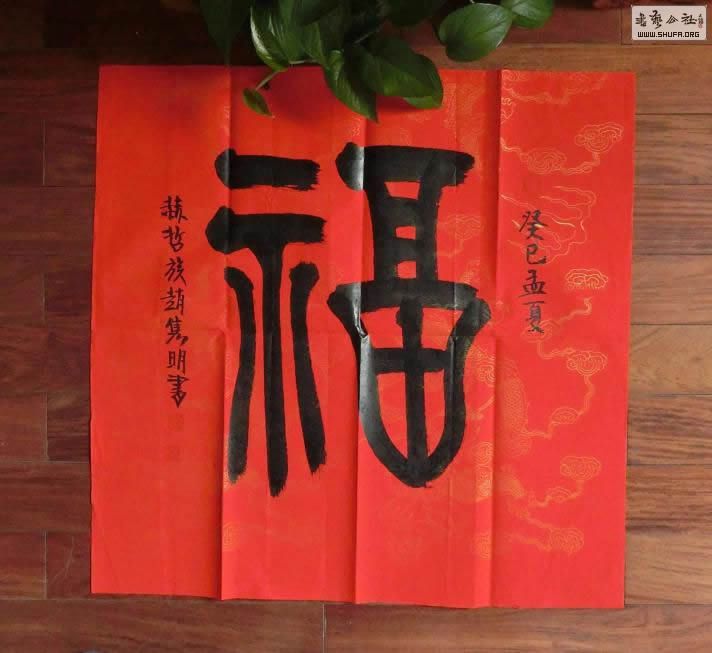 癸巳孟夏
福
赫哲族趙雋明書
書藝公社
WWW.SHUFA.ORG